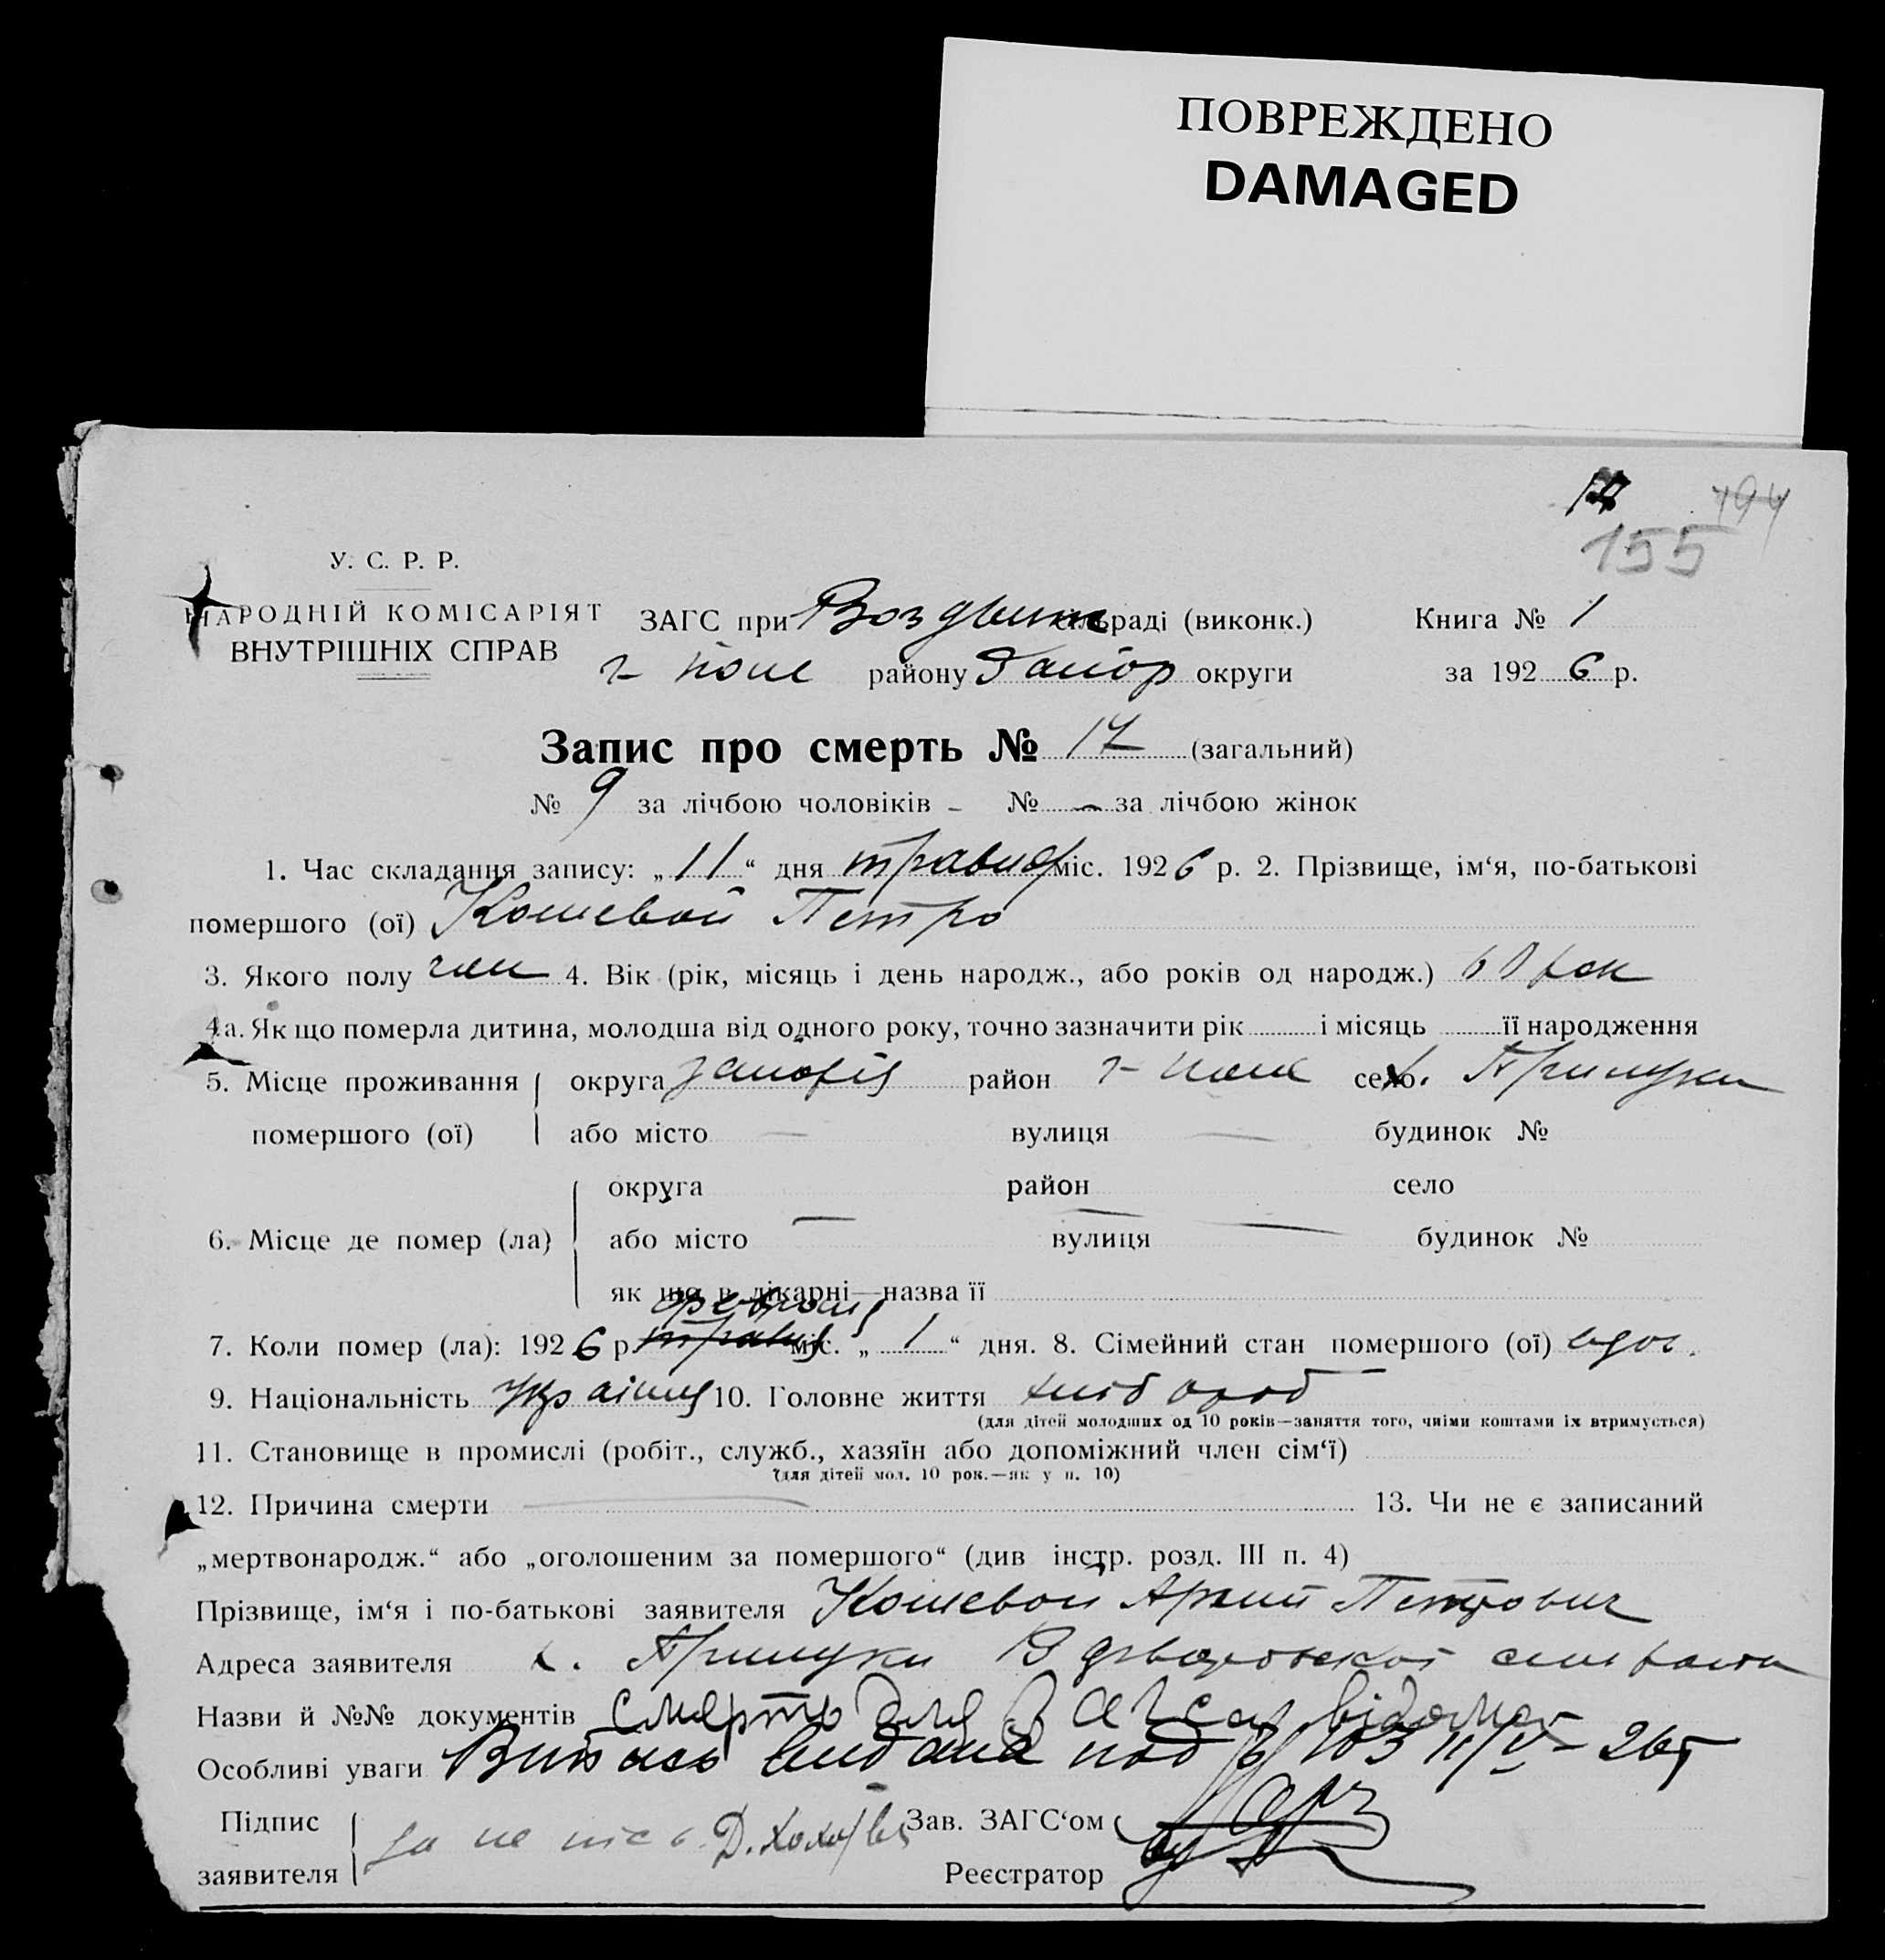 ПОВРЕЖДЕНО
DAMAGED
194
155
У. С. Р. Р.
НАРОДНІЙ КОМІСАРІЯТ
ВНУТРІШНІХ СПРАВ
ЗАГС при Воздвиж сільраді (виконк.)
Книга № 1
г-поле району Запор округи
за 1926 р.
Запис про смерть № 17 (загальний)
№ 9 за лічбою чоловіків – № за лічбою жінок
1. Час складання запису: „11“ дня травня міс. 1926 р. 2. Прізвище, ім‘я, по-батькові
помершого (ої) Кошевой Петро
3. Якого полу чол 4. Вік (рік, місяць і день народж., або років од народж.) 60 рок
4а. Як що померла дитина, молодша від одного року, точно зазначити рік і місяць її народження
5. Місце проживання округа запоріз район г-поле село х. Прилуки
помершого (ої) або місто — вулиця — будинок №
округа район село
6. Місце де помер (ла) або місто — вулиця — будинок №
як що в лікарні—назва її
7. Коли помер (ла): 1926 р. травня міс. „1“ дня. 8. Сімейний стан помершого (ої) вдов.
9. Національність Україн 10. Головне життя хлібороб
(для дітей молодших од 10 років—заняття того, чиїми коштами їх втримується)
11. Становище в промислі (робіт., служб., хазяїн або допоміжний член сім‘ї)
(для дітей мол. 10 рок.—як у п. 10)
12. Причина смерти — 13. Чи не є записаний
„мертвонародж.“ або „оголошеним за помершого“ (див інстр. розд. III п. 4)
Прізвище, ім‘я і по-батькові заявителя Кошевой Архип Петрович
Адреса заявителя х. Прилуки
Назви й №№ документів Смерть для Загса відома
Особливі уваги Випись видана под № 103 11/V–26 г
Підпис
заявителя
Зав. ЗАГС‘ом
Реєстратор